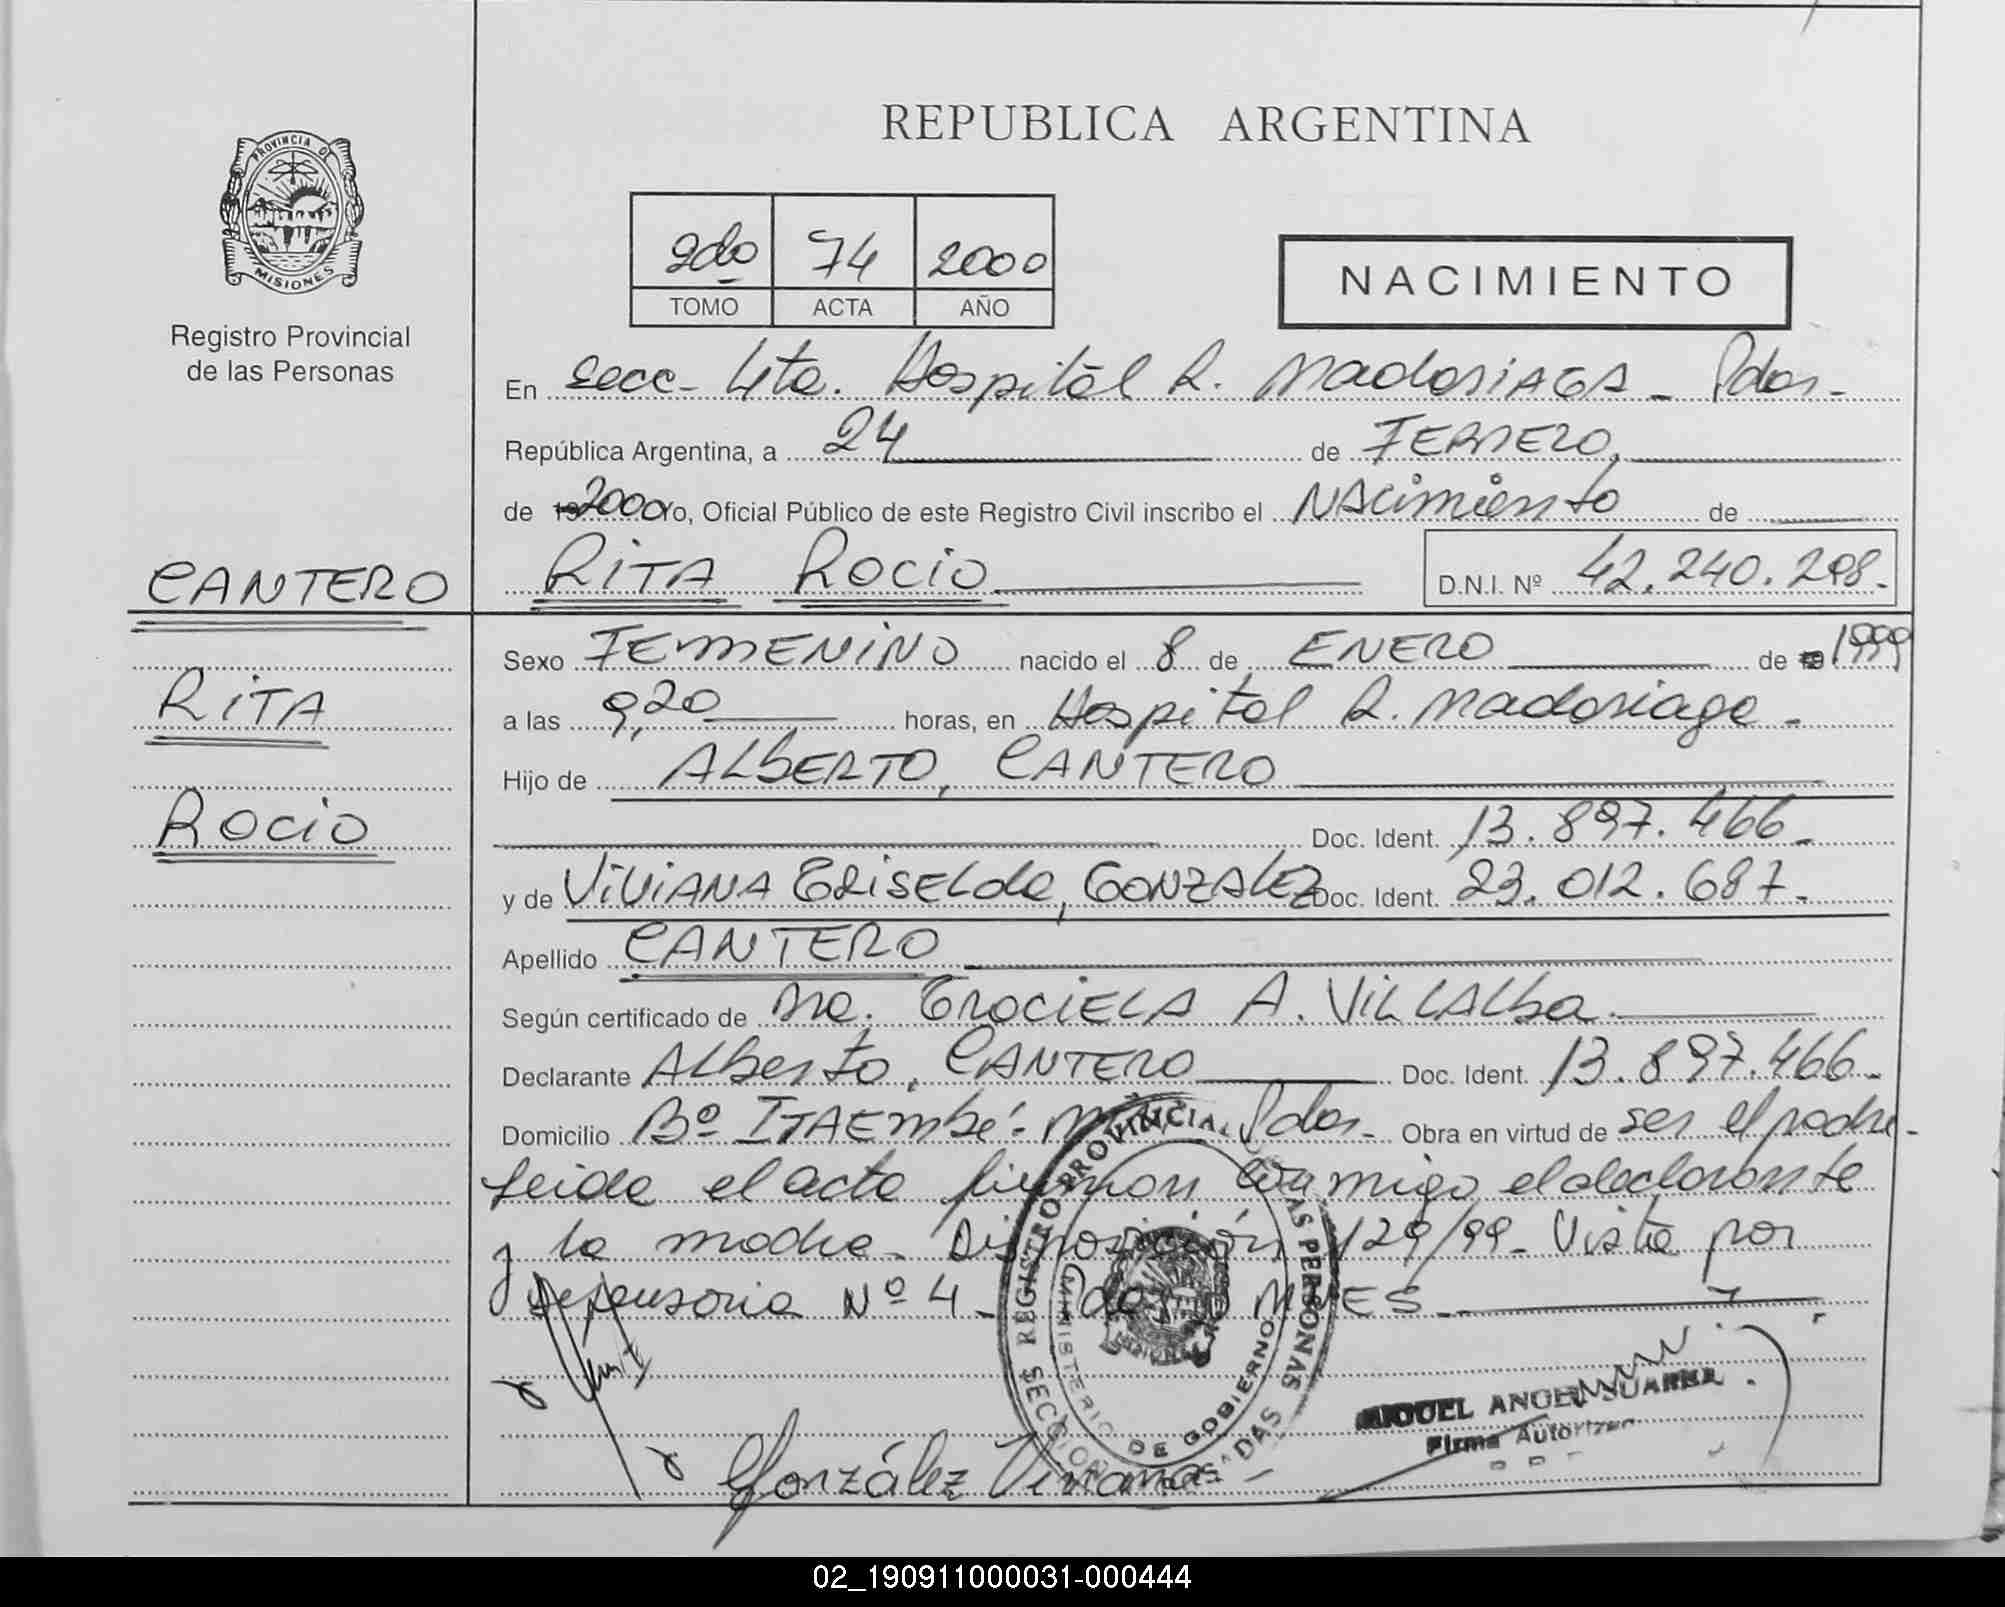 REPUBLICA ARGENTINA
PROVINCIA DE
MISIONES
Registro Provincial
de las Personas
2do 74 2000
TOMO ACTA AÑO
NACIMIENTO
En Secc. 4ta. Hospital R. Madariaga - Pdas.
República Argentina, a 24 de FEBRERO
de 2000 yo, Oficial Público de este Registro Civil inscribo el NAcimiento de
RITA ROCIO D.N.I. Nº 42.240.298.-
CANTERO
RITA
ROCIO
Sexo FEMENINO nacido el 8 de ENERO de 1999
a las 9,20 horas, en Hospital R. Madariaga -
Hijo de ALBERTO, CANTERO
Doc. Ident. 13.897.466 -
y de ViViANA GRiSELda, GONZALEZ Doc. Ident. 23.012.687 -
Apellido CANTERO
Según certificado de Dra. GRACIELA A. VILLALba.
Declarante ALBerto, CANTERO Doc. Ident. 13.897.466 -
Domicilio Bº ITAEmbé Pdas - Obra en virtud de ser el padre -
leida el acta firman conmigo el declarante
y la madre - Disposición 129/99 - Vista por
Defensoria Nº 4 - MNES -
REGISTRO PROVINCIAL DE LAS PERSONAS
MINISTERIO DE GOBIERNO
SECCION POSADAS
MIGUEL ANGEL SUAREZ
Firma Autoriza
González Viviana
02_190911000031-000444